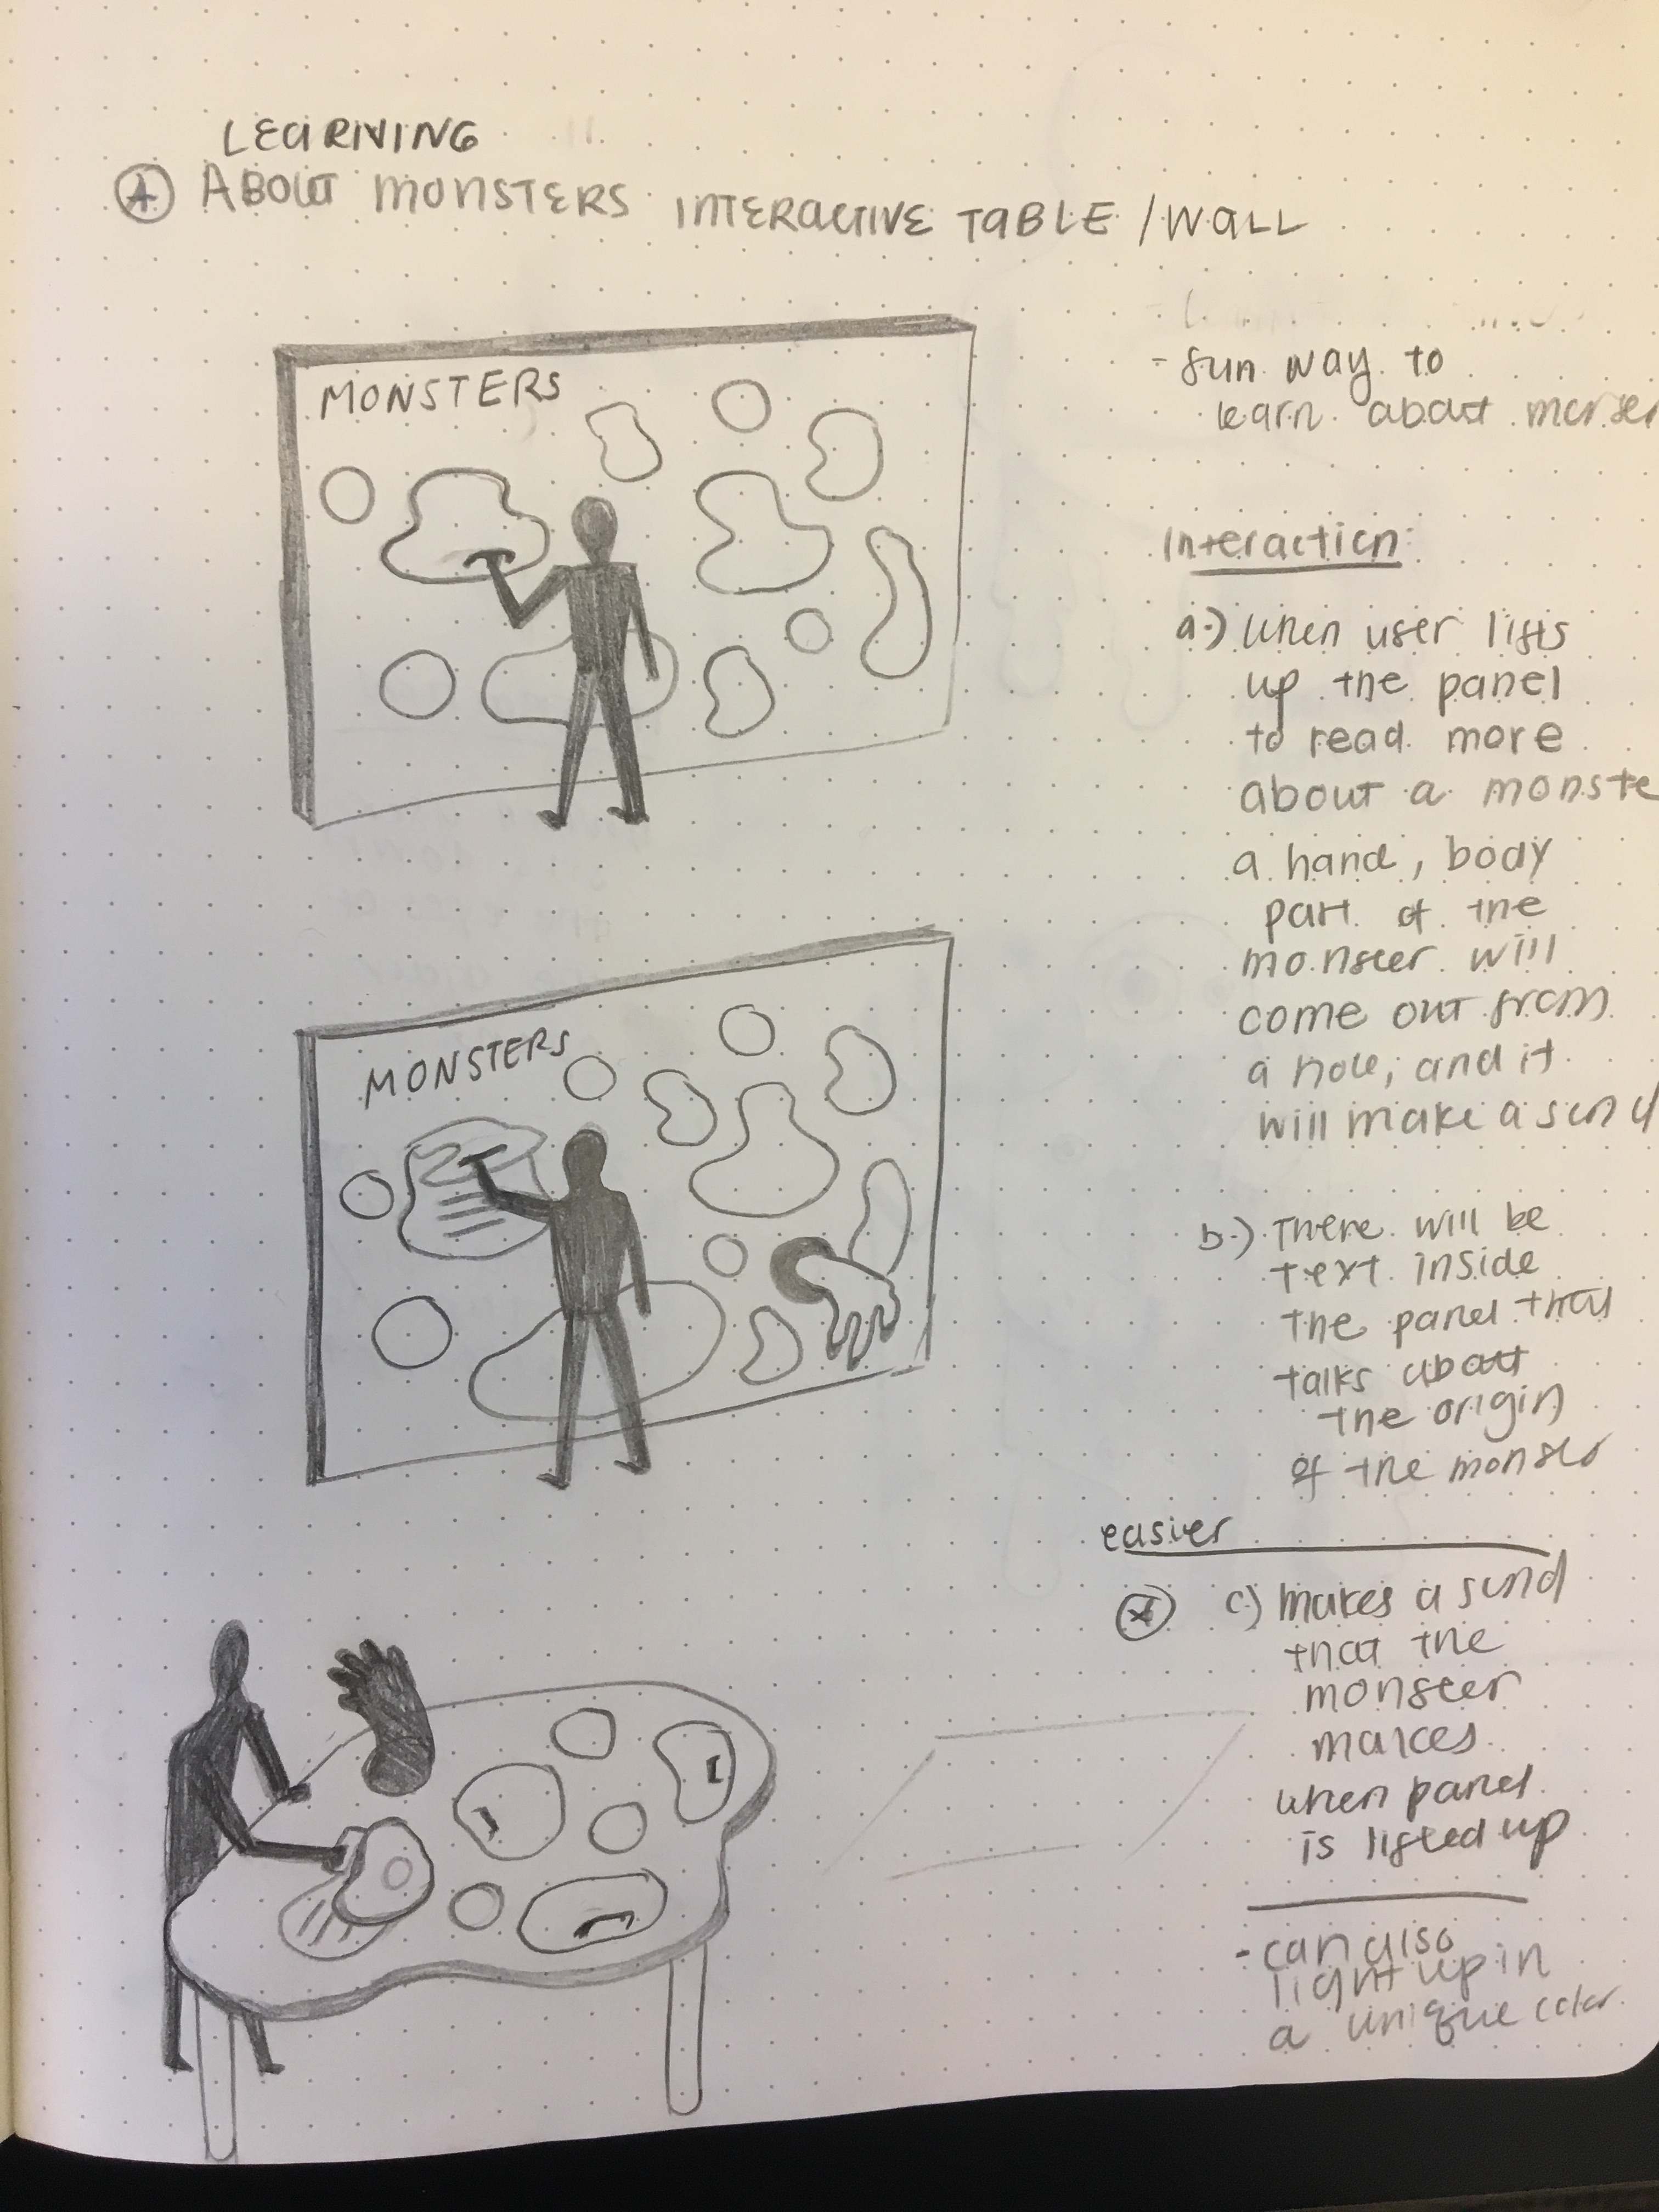 LEARNING
4 ABOUT MONSTERS INTERACTIVE TABLE / WALL
MONSTERS
- fun way to
learn about
Interaction:
a.) when user lifts
up the panel
to read more
about a monste
a hand, body
part of the
monster will
come out from
a hole, and it
will make a sund
b.) There will be
text inside
the panel that
talks about
the origin
of the monster
MONSTERS
easier
c.) makes a sund
that the
monster
makes
when panel
is lifted up
- can also
light up in
a unique color